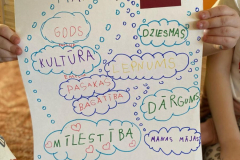 GODS
DZIESMAS
KULTŪRA
LEPNUMS
PAGĀTNES
BAGĀTĪBA
DĀRGUMS
MĪLESTĪBA
MANAS MĀJAS